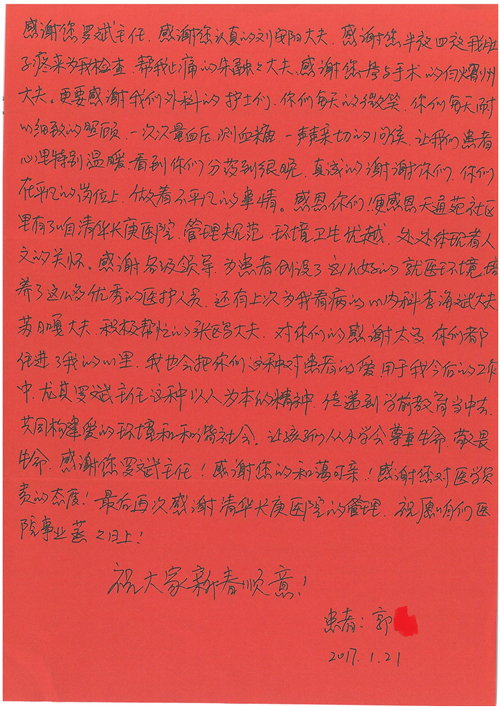 感谢您罗斌主任、感谢您认真的刘安阳大夫、感谢您半夜四次我肚
子疼来为我检查、帮我止痛的朱大夫、感谢您参与手术的向州
大夫。更要感谢我们外科的护士们、你们每天的微笑、你们每天耐
心细致的照顾、一次次量血压、测血糖、一声声亲切的问侯、让我们患者
心里特别温暖看到你们分药到很晚、真诚的谢谢你们、你们
在平凡的岗位上、做着不平凡的事情。感恩你们、便感恩天通苑社区
里有了咱清华长庚医院、管理规范、环境卫生优越、处处体现着人
文的关怀。感谢各级领导、为患者创设了这么好的就医环境、培
养了这么多优秀的医护人员、还有上次为我看病的心内科李海斌大夫
苏日嘎大夫、积极帮忙的张大夫、对你们的感谢太多、你们都
住进了我的心里、我也会把你们这种对患者的爱用于我今后的工作
中、尤其罗斌主任这种以人为本的精神、传递到学前教育当中去、
共同构建爱的环境和和谐社会。让孩子们从小学会尊重生命、敬畏
生命、感谢您罗斌主任！感谢您的和蔼可亲！感谢您对医学负
责的态度！最后再次感谢清华长庚医院的管理、祝愿咱们医
院事业蒸々日上！
祝大家新春顺意！
患者：郭
2017.1.21